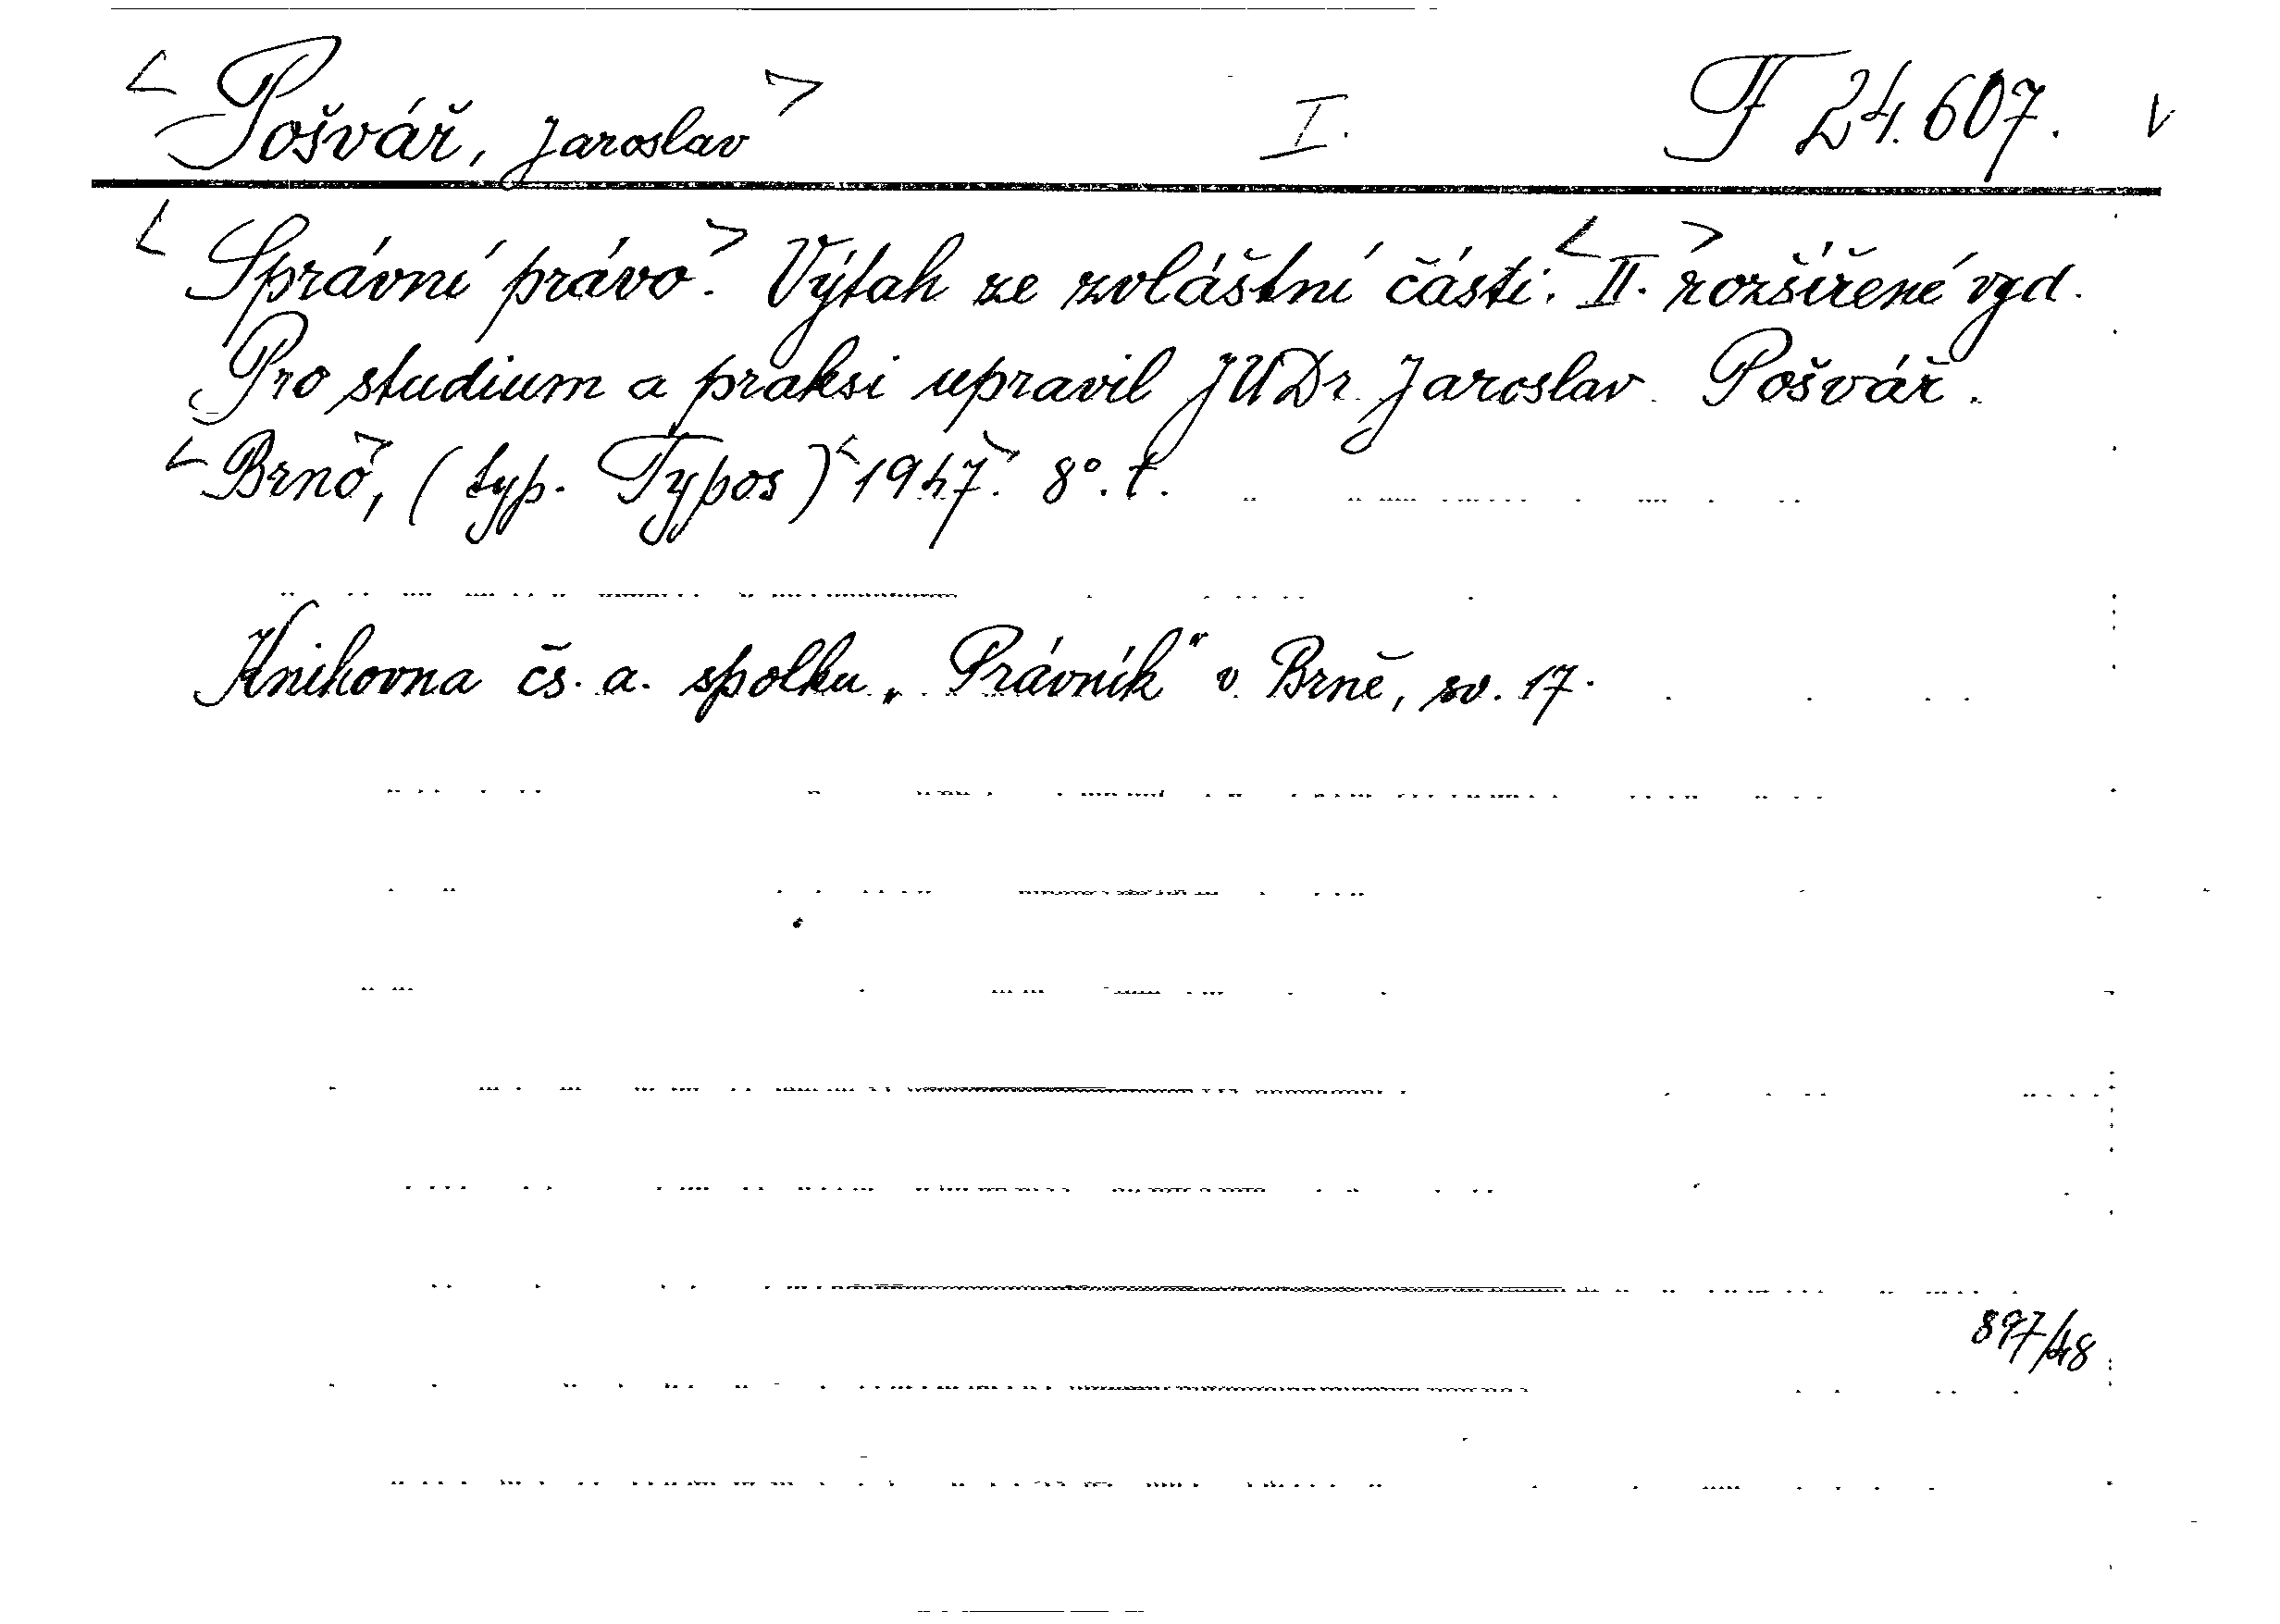 < Pošvář, Jaroslav > I. F 24.607. v
< Správní právo. > Výtah ze zvláštní části. < II. > rozšířené vyd.
Pro studium a praksi upravil JUDr. Jaroslav Pošvář.
< Brno >, (typ. Typos) < 1947. > 8°. t.
Knihovna čs. a. spolku „Právník" v Brně, sv. 17.
897/48